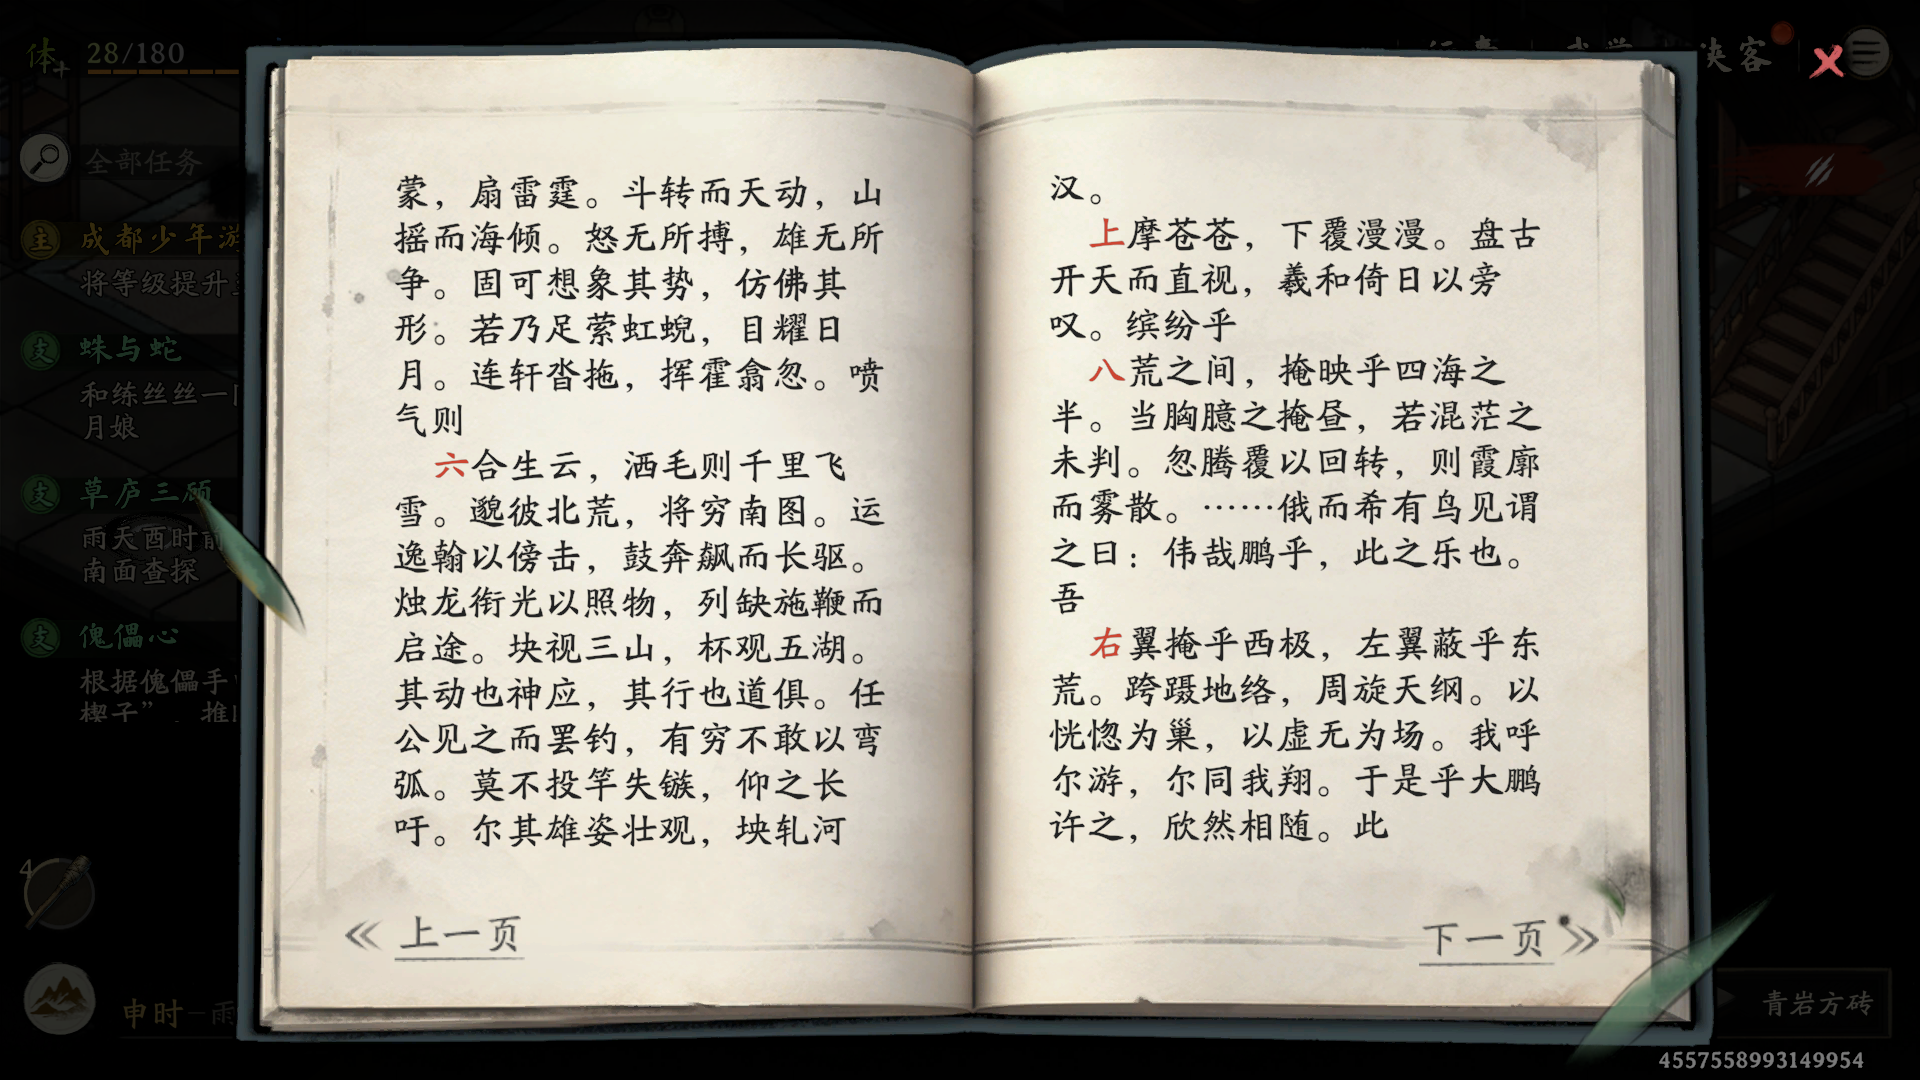 28/180
全部任务
主 成都少年游
将等级提升
支 蛛与蛇
和练丝丝一
月娘
支 草庐三顾
雨天酉时前
南面查探
支 傀儡心
根据傀儡手
楔子”，推
4
申时-雨
侠客
蒙，扇雷霆。斗转而天动，山
摇而海倾。怒无所搏，雄无所
争。固可想象其势，仿佛其
形。若乃足萦虹蜺，目耀日
月。连轩沓拖，挥霍翕忽。喷
气则
六合生云，洒毛则千里飞
雪。邈彼北荒，将穷南图。运
逸翰以傍击，鼓奔飙而长驱。
烛龙衔光以照物，列缺施鞭而
启途。块视三山，杯观五湖。
其动也神应，其行也道俱。任
公见之而罢钓，有穷不敢以弯
弧。莫不投竿失镞，仰之长
吁。尔其雄姿壮观，坱轧河
上一页
汉。
上摩苍苍，下覆漫漫。盘古
开天而直视，羲和倚日以旁
叹。缤纷乎
八荒之间，掩映乎四海之
半。当胸臆之掩昼，若混茫之
未判。忽腾覆以回转，则霞廓
而雾散。……俄而希有鸟见谓
之曰：伟哉鹏乎，此之乐也。
吾
右翼掩乎西极，左翼蔽乎东
荒。跨蹑地络，周旋天纲。以
恍惚为巢，以虚无为场。我呼
尔游，尔同我翔。于是乎大鹏
许之，欣然相随。此
下一页
青岩方砖
4557558993149954